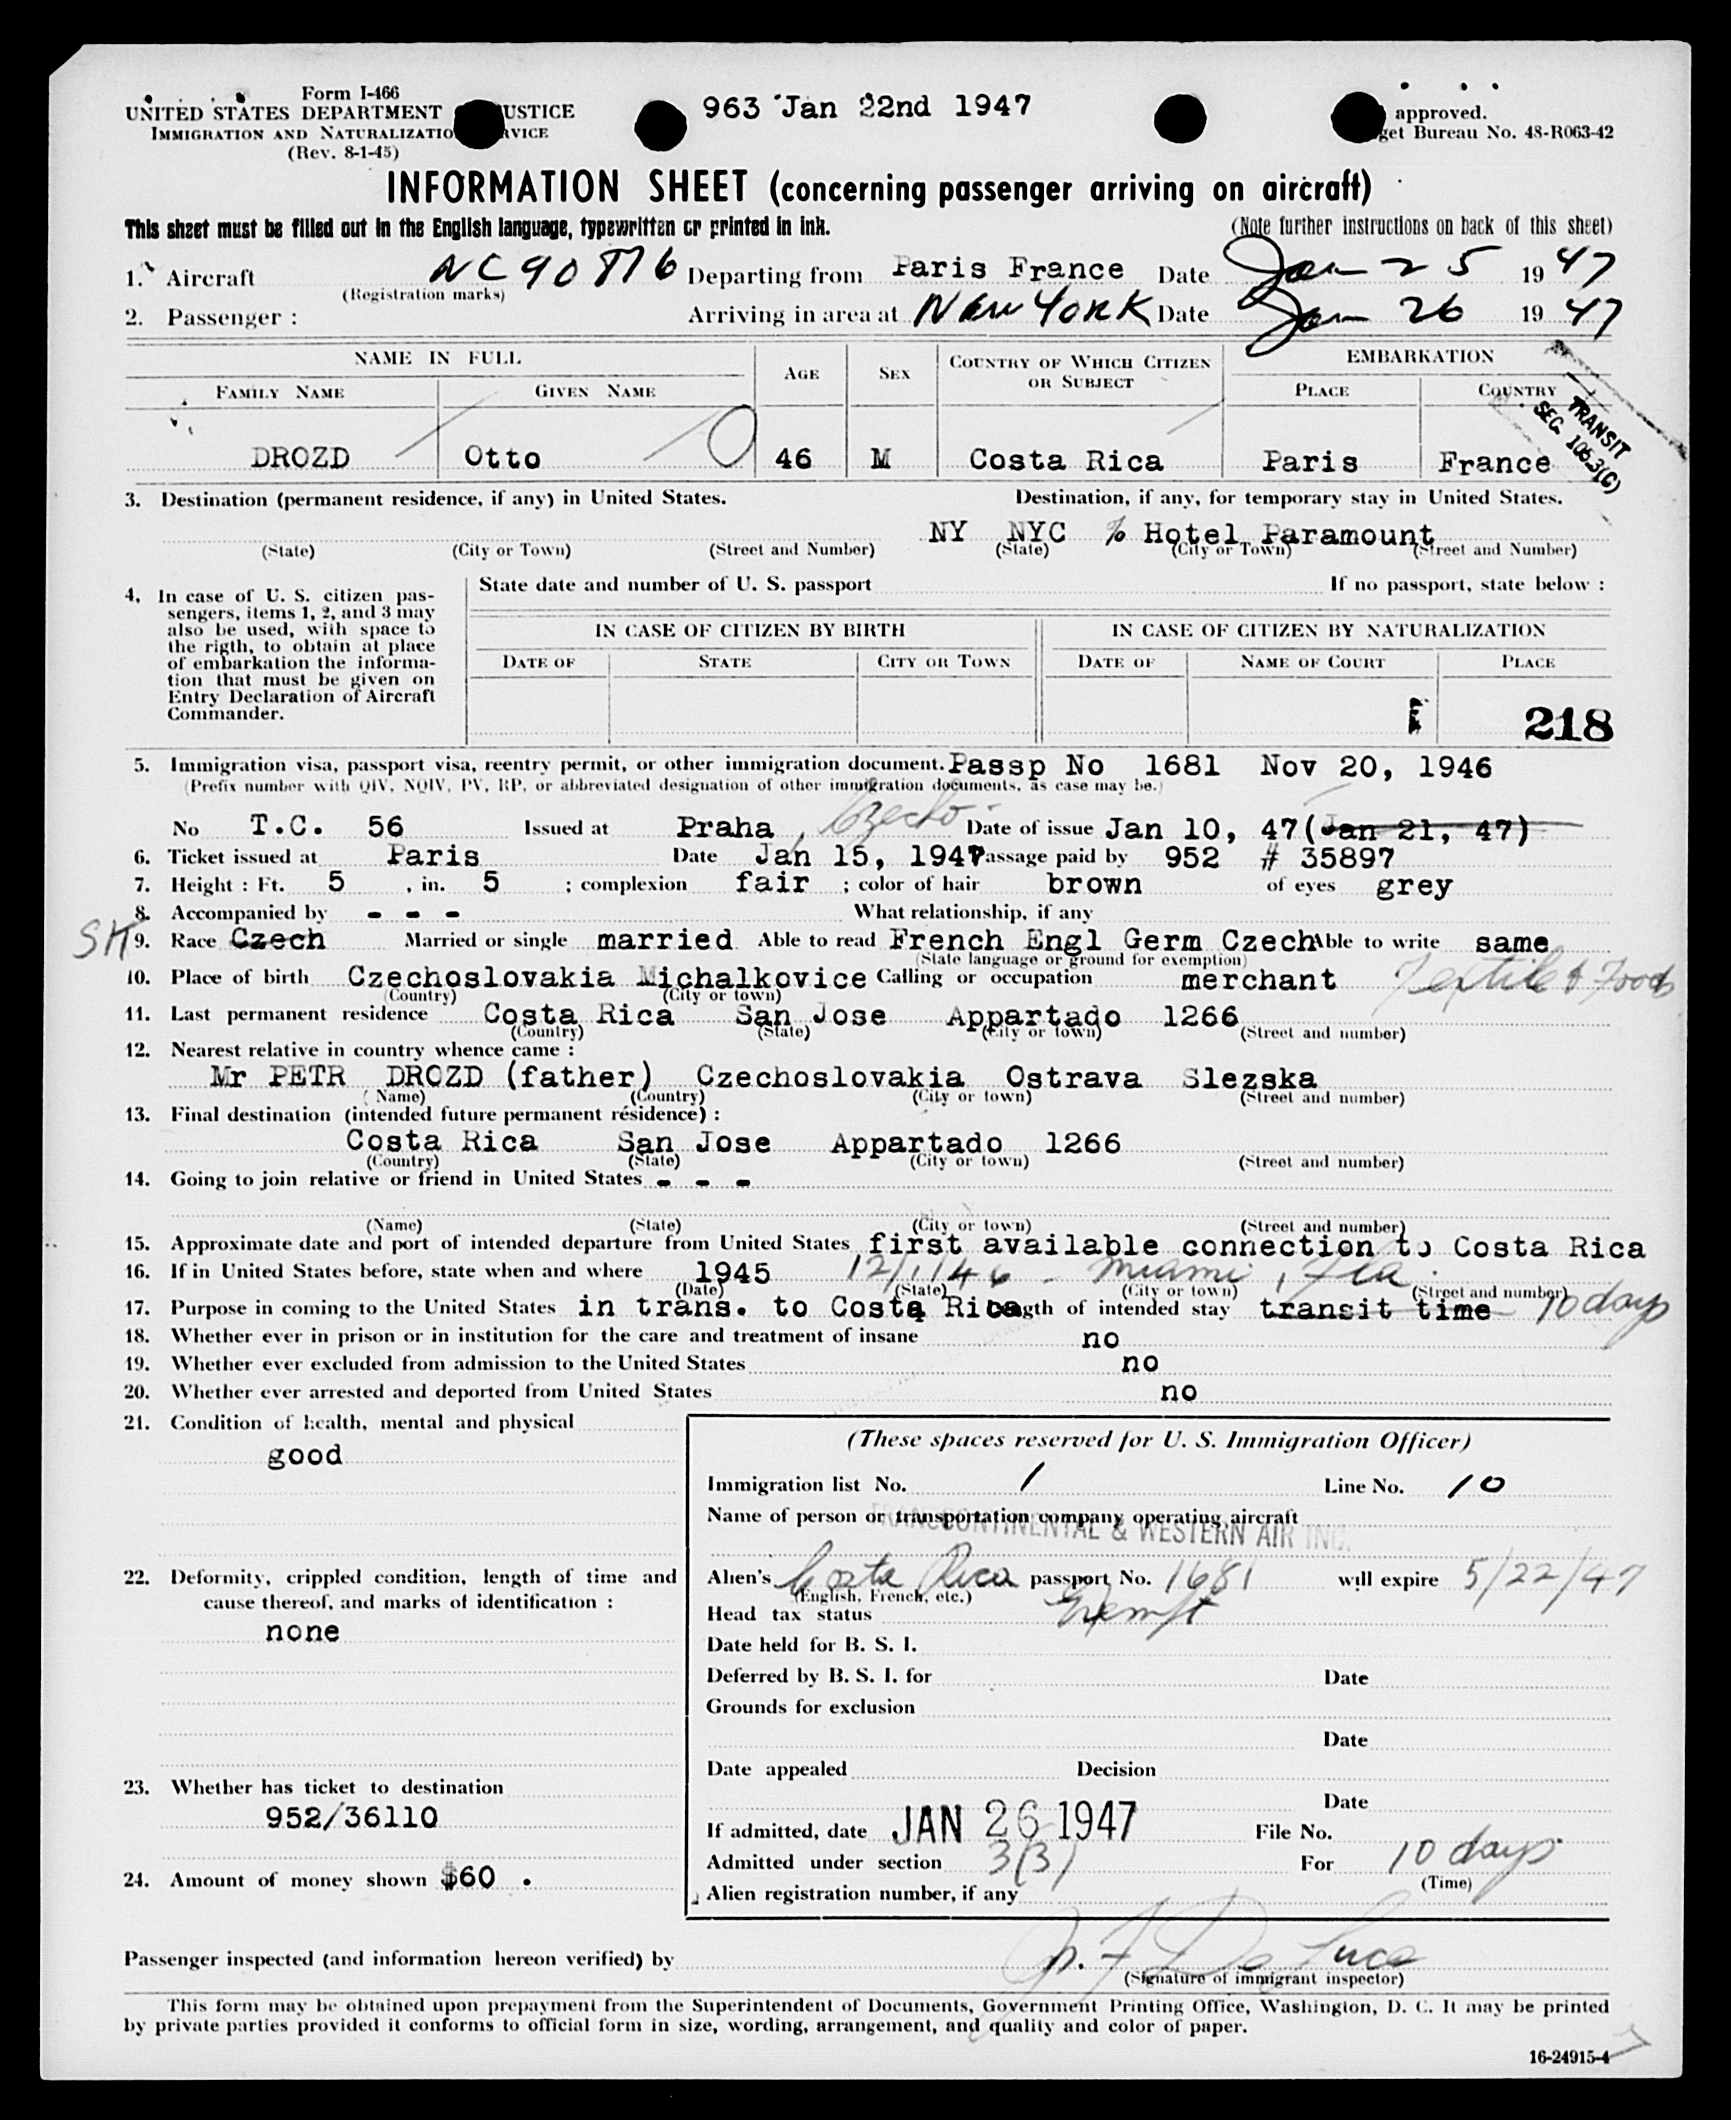 Form I-466
UNITED STATES DEPARTMENT USTICE
963 Jan 22nd 1947
approved.
IMMIGRATION AND NATURALIZATIO RVICE
get Bureau No. 48-R063-42
(Rev. 8-1-45)
INFORMATION SHEET (concerning passenger arriving on aircraft)
This sheet must be filled out in the English language, typewritten or printed in ink.
(Note further instructions on back of this sheet)
1. Aircraft Departing from Paris France Date Jan 25 1947
(Registration marks)
2. Passenger : Arriving in area at New York Date Jan 26 1947
NAME IN FULL AGE SEX COUNTRY OF WHICH CITIZEN OR SUBJECT EMBARKATION
FAMILY NAME GIVEN NAME PLACE COUNTRY
TRANSIT
SEC. 105.3(C)
DROZD Otto 46 M Costa Rica Paris France
3. Destination (permanent residence, if any) in United States. Destination, if any, for temporary stay in United States.
NY NYC % Hotel Paramount
(State) (City or Town) (Street and Number) (State) (City or Town) (Street and Number)
4. In case of U. S. citizen pas-
sengers, items 1, 2, and 3 may
also be used, with space to
the rigth, to obtain at place
of embarkation the informa-
tion that must be given on
Entry Declaration of Aircraft
Commander.
State date and number of U. S. passport If no passport, state below :
IN CASE OF CITIZEN BY BIRTH IN CASE OF CITIZEN BY NATURALIZATION
DATE OF STATE CITY OR TOWN DATE OF NAME OF COURT PLACE
218
5. Immigration visa, passport visa, reentry permit, or other immigration document. Passp No 1681 Nov 20, 1946
(Prefix number with QIV, NQIV, PV, RP, or abbreviated designation of other immigration documents, as case may be.)
No T.C. 56 Issued at Praha, Czecho- Date of issue Jan 10, 47(Jan 21, 47)
6. Ticket issued at Paris Date Jan 15, 1947 Passage paid by 952 # 35897
7. Height : Ft. 5 , in. 5 ; complexion fair ; color of hair brown of eyes grey
8. Accompanied by - - - What relationship, if any
SK 9. Race Czech Married or single married Able to read French Engl Germ Czech Able to write same
(State language or ground for exemption)
10. Place of birth Czechoslovakia Michalkovice Calling or occupation merchant Textile & Foods
(Country) (City or town)
11. Last permanent residence Costa Rica San Jose Appartado 1266
(Country) (State) (City or town) (Street and number)
12. Nearest relative in country whence came :
Mr PETR DROZD (father) Czechoslovakia Ostrava Slezska
(Name) (Country) (City or town) (Street and number)
13. Final destination (intended future permanent résidence) :
Costa Rica San Jose Appartado 1266
(Country) (State) (City or town) (Street and number)
14. Going to join relative or friend in United States - - -
(Name) (State) (City or town) (Street and number)
15. Approximate date and port of intended departure from United States first available connection to Costa Rica
16. If in United States before, state when and where 1945 12/1/46 - Miami, Fla.
(Date) (State) (City or town) (Street and number)
17. Purpose in coming to the United States in trans. to Costa Rica Length of intended stay transit time 10 days
18. Whether ever in prison or in institution for the care and treatment of insane no
19. Whether ever excluded from admission to the United States no
20. Whether ever arrested and deported from United States no
21. Condition of health, mental and physical
good
22. Deformity, crippled condition, length of time and
cause thereof, and marks of identification :
none
23. Whether has ticket to destination
952/36110
24. Amount of money shown $60 .
(These spaces reserved for U. S. Immigration Officer)
Immigration list No. 1 Line No. 10
Name of person or transportation company operating aircraft
TRANSCONTINENTAL & WESTERN AIR INC.
Alien's Costa Rica passport No. 1681 will expire 5/22/47
(English, French, etc.)
Head tax status Exempt
Date held for B. S. I.
Deferred by B. S. I. for Date
Grounds for exclusion
Date
Date appealed Decision
Date
If admitted, date JAN 26 1947 File No.
Admitted under section 3(3) For 10 days
(Time)
Alien registration number, if any
Passenger inspected (and information hereon verified) by
(Signature of immigrant inspector)
This form may be obtained upon prepayment from the Superintendent of Documents, Government Printing Office, Washington, D. C. It may be printed
by private parties provided it conforms to official form in size, wording, arrangement, and quality and color of paper.
16-24915-4